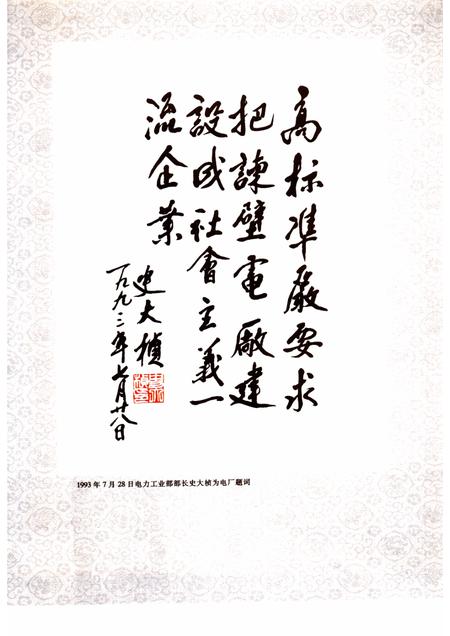 高标準嚴要求
把諫壁電廠建
設成社會主義一
流企業
史大楨
一九九三年七月廿八日
1993年7月28日电力工业部部长史大桢为电厂题词